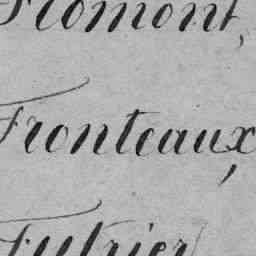 Fromont,
Fronteaux,
Futrier